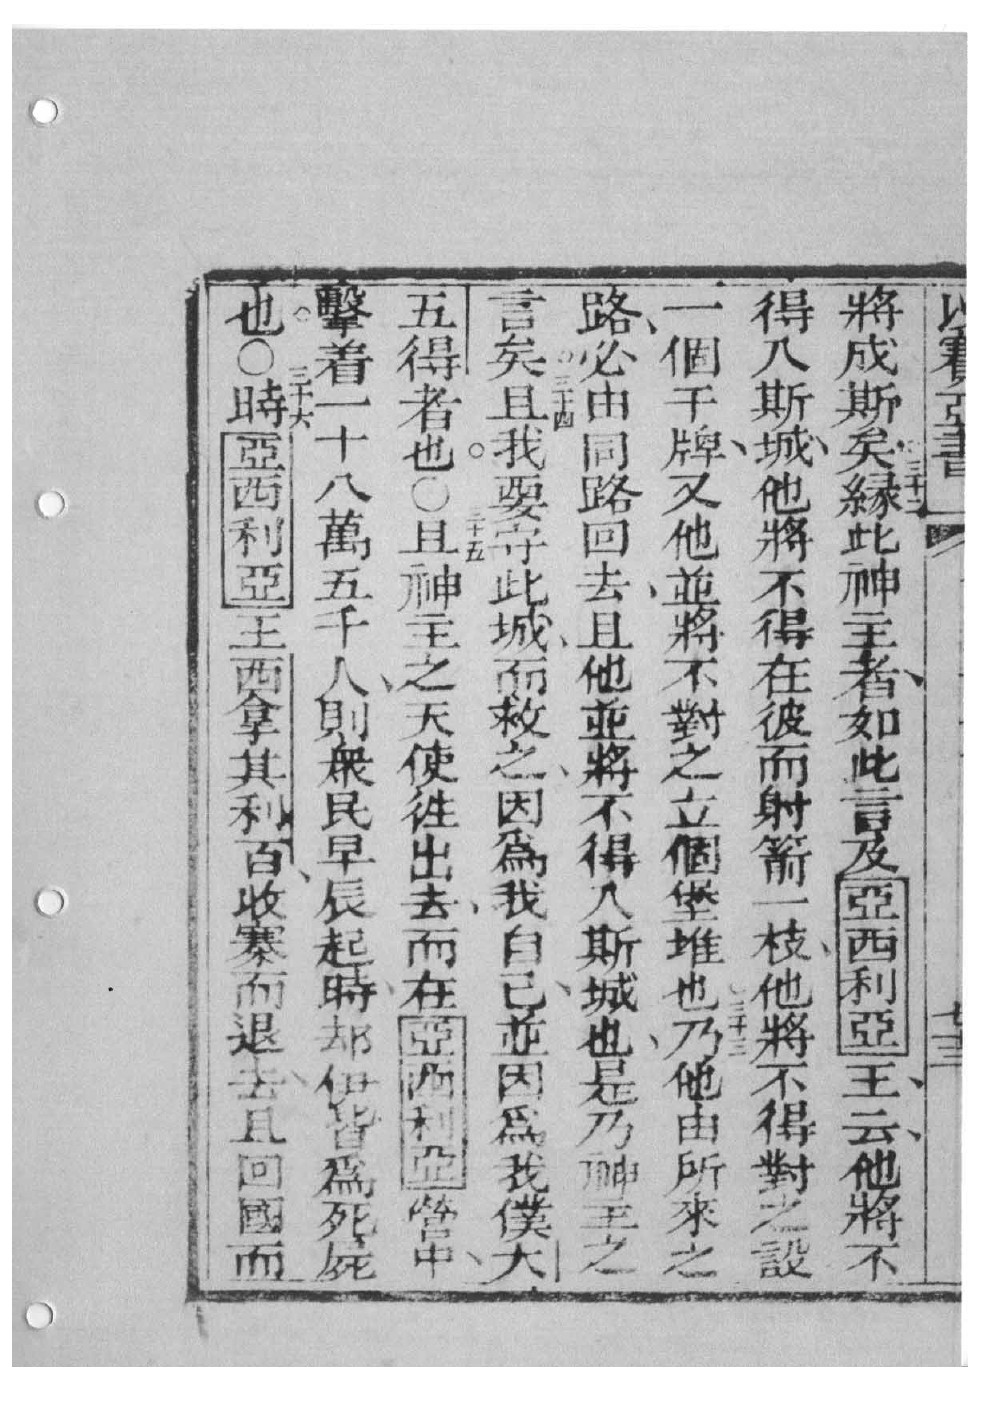 以賽亞書
七十三
將成斯矣三十三緣此神主者如此言及亞西利亞王云他將不
得入斯城他將不得在彼而射箭一枝他將不得對之設
一個干牌又他並將不對之立個堡堆也三十三乃他由所來之
路必由同路回去且他並將不得入斯城也是乃神主之
言矣○三十四且我要守此城而救之因爲我自己並因爲我僕大
五得者也○三十五且神主之天使徃出去而在亞西利亞營中
擊着一十八萬五千人則衆民早辰起時却伊皆爲死屍
也○三十六時亞西利亞王西拿其利百收寨而退去且回國而